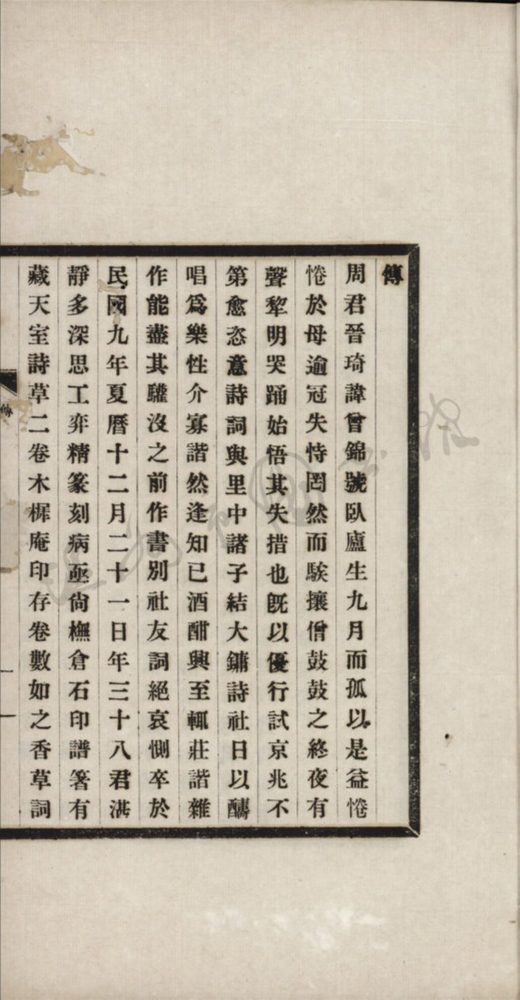 傳
周君晉琦諱曾錦號臥廬生九月而孤以是益惓
惓於母逾冠失恃罔然而駭攘僧鼓鼓之終夜有
聲犂明哭踊始悟其失措也旣以優行試京兆不
第愈恣意詩詞與里中諸子結大鏞詩社日以酬
唱爲樂性介寡諧然逢知已酒酣興至輒莊諧雜
作能盡其驩沒之前作書別社友詞絕哀惻卒於
民國九年夏曆十二月二十一日年三十八君湛
靜多深思工弈精篆刻病亟尙橅倉石印譜箸有
藏天室詩草二卷木樨庵印存卷數如之香草詞